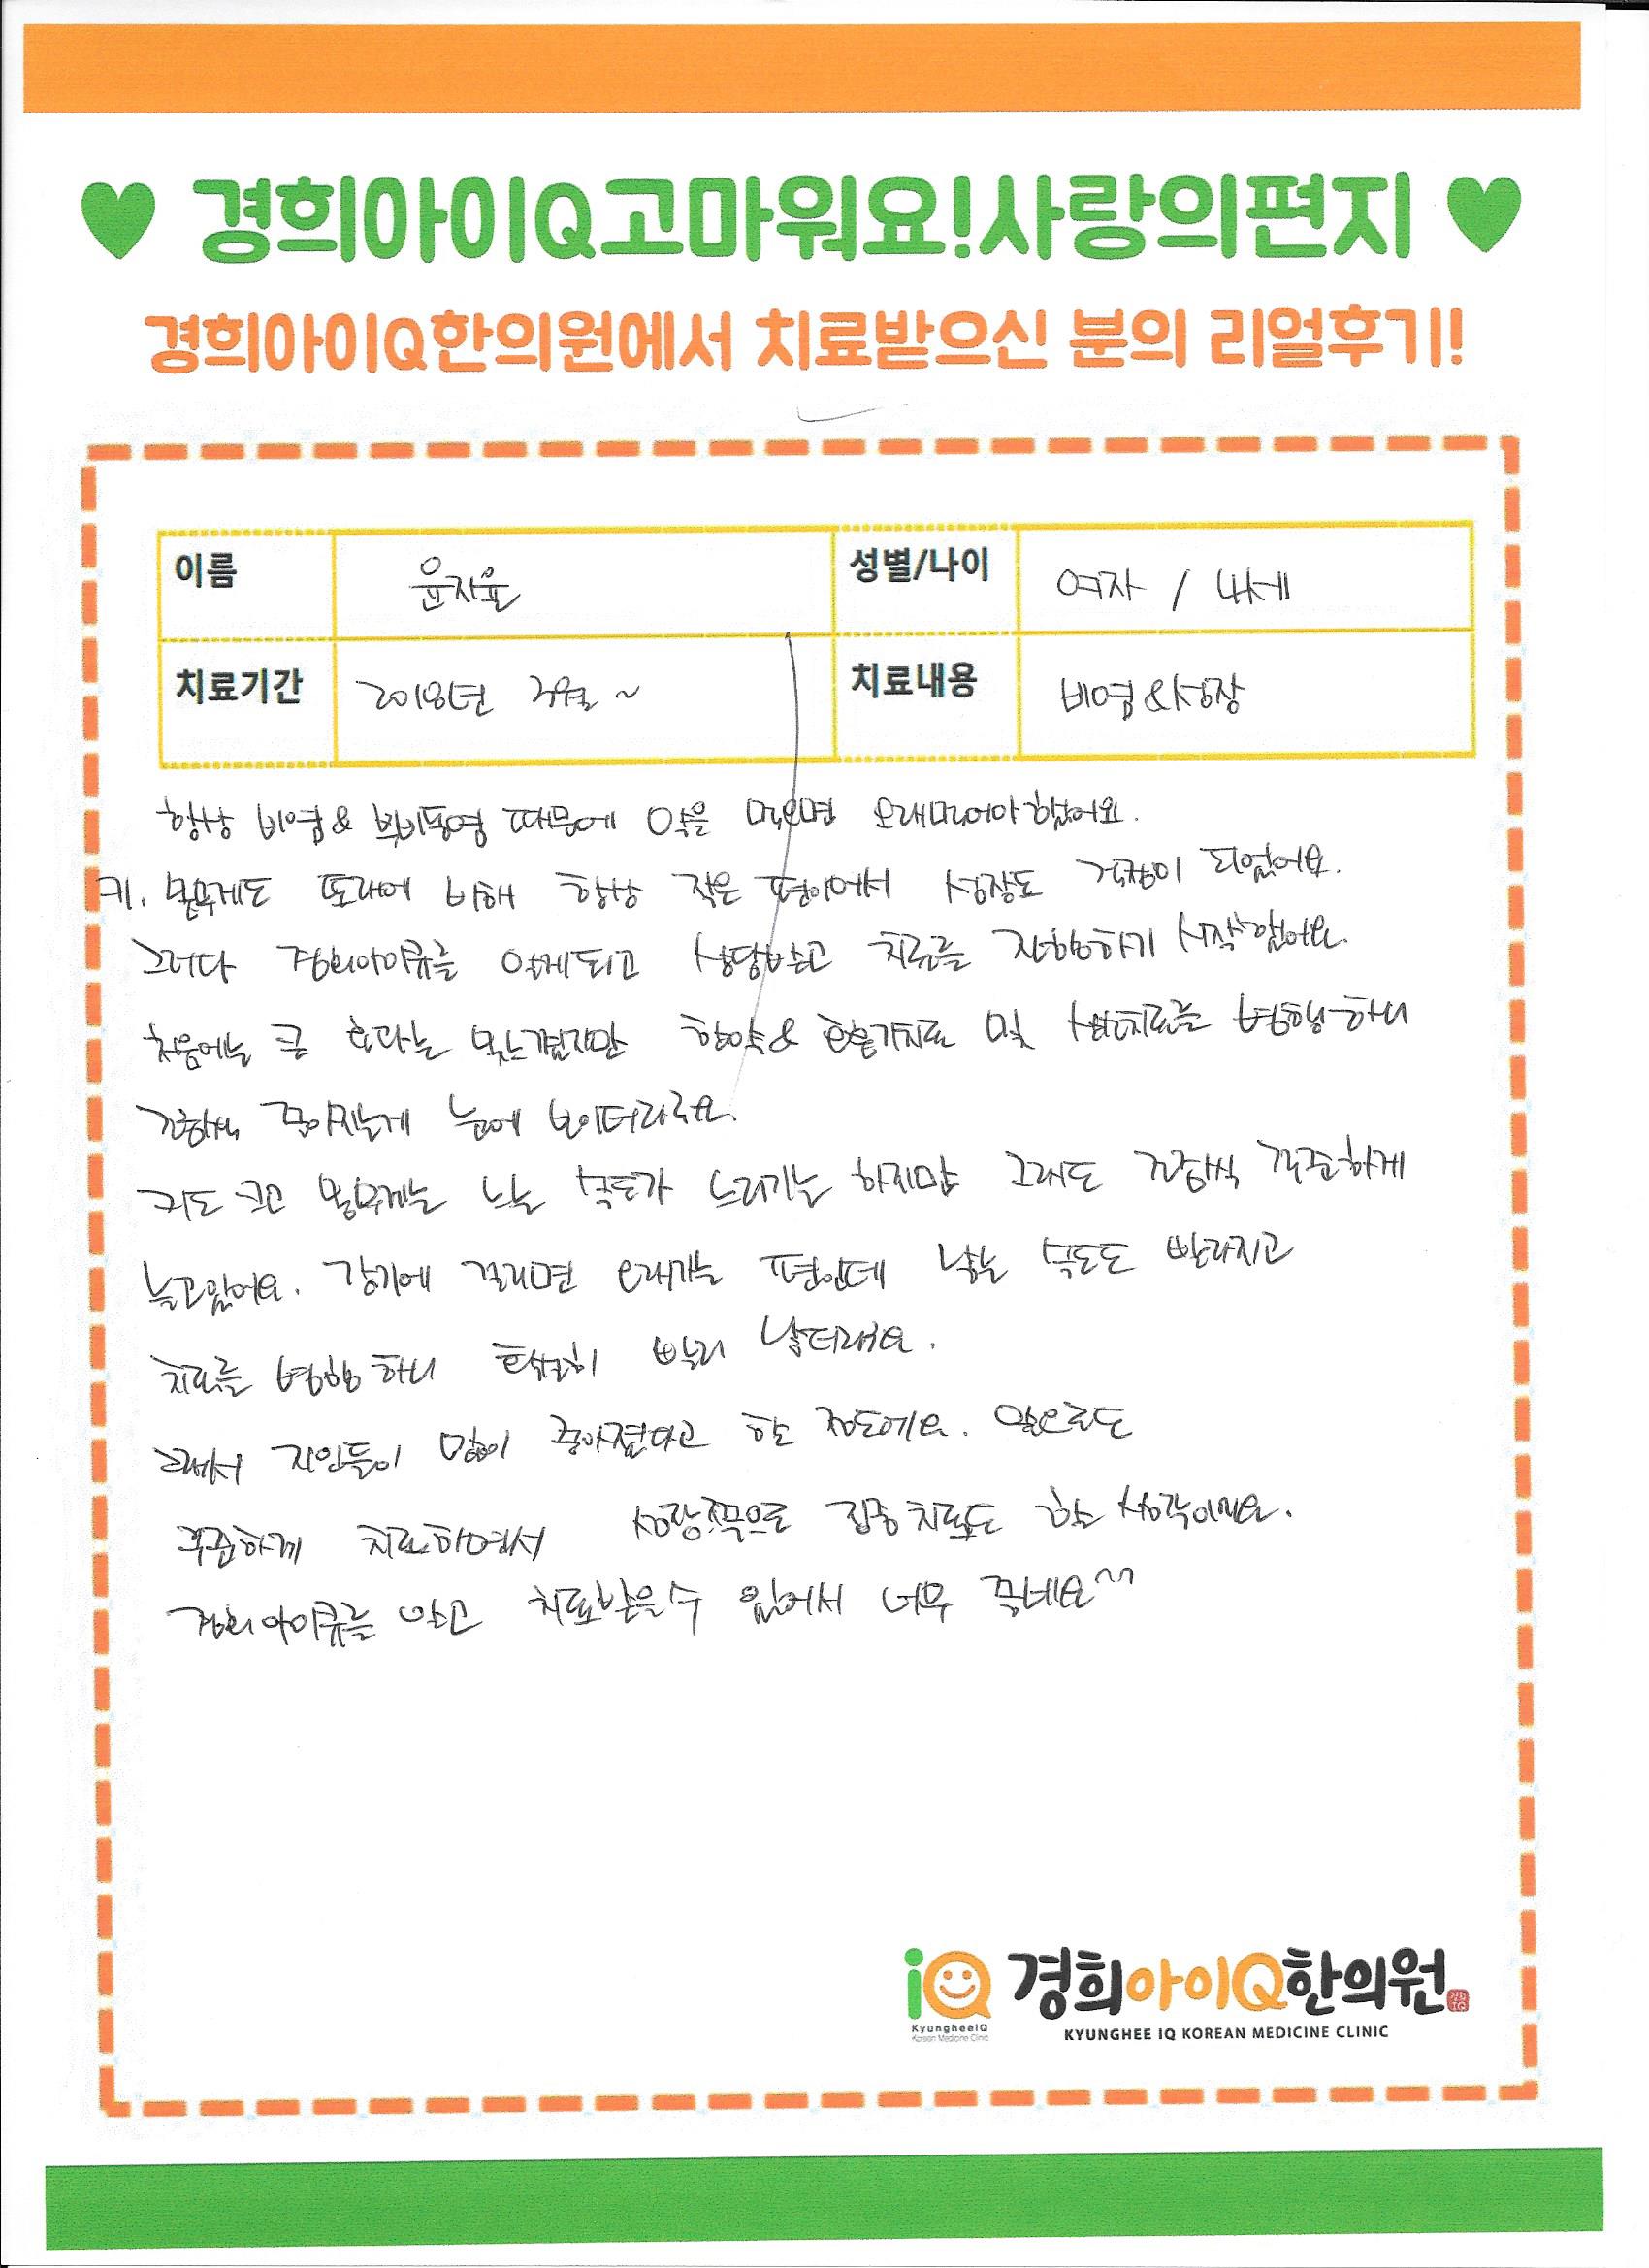 ♥ 경희아이Q고마워요!사랑의편지 ♥
경희아이Q한의원에서 치료받으신 분의 리얼후기!
이름 윤지율 성별/나이 여자 / 4세
치료기간 2018년 ~ 치료내용 비염&성장
항상 비염& 부비동염 때문에 약을 먹으면 오래먹어야했어요.
키. 몸무게도 또래에 비해 항상 작은 편이어서 성장도 걱정이 되었어요.
그러다 경희아이큐를 알게되고 상담받고 치료를 진행하기 시작했어요.
처음에는 큰 효과는 못느꼈지만 한약& 호흡기치료 및 치료를 병행하니
점점 좋아지는게 눈에 보이더라구요.
키도 크고 몸무게는 느는 속도가 느리기는 하지만 그래도 조금씩 꾸준하게
늘고있어요. 감기에 걸리면 오래가는 편인데 낫는 속도도 빨라지고
치료를 병행하니 확실히 빨리 낫더라구요.
그래서 지인들이 많이 좋아졌다고 할 정도에요. 앞으로도
꾸준하게 치료하면서 성장쪽으로 집중치료도 할 생각이에요.
경희아이큐를 알고 치료받을수 있어서 너무 좋네요^^
iQ 경희아이Q한의원
KyungheeIQ
Korean Medicine Clinic
KYUNGHEE IQ KOREAN MEDICINE CLINIC